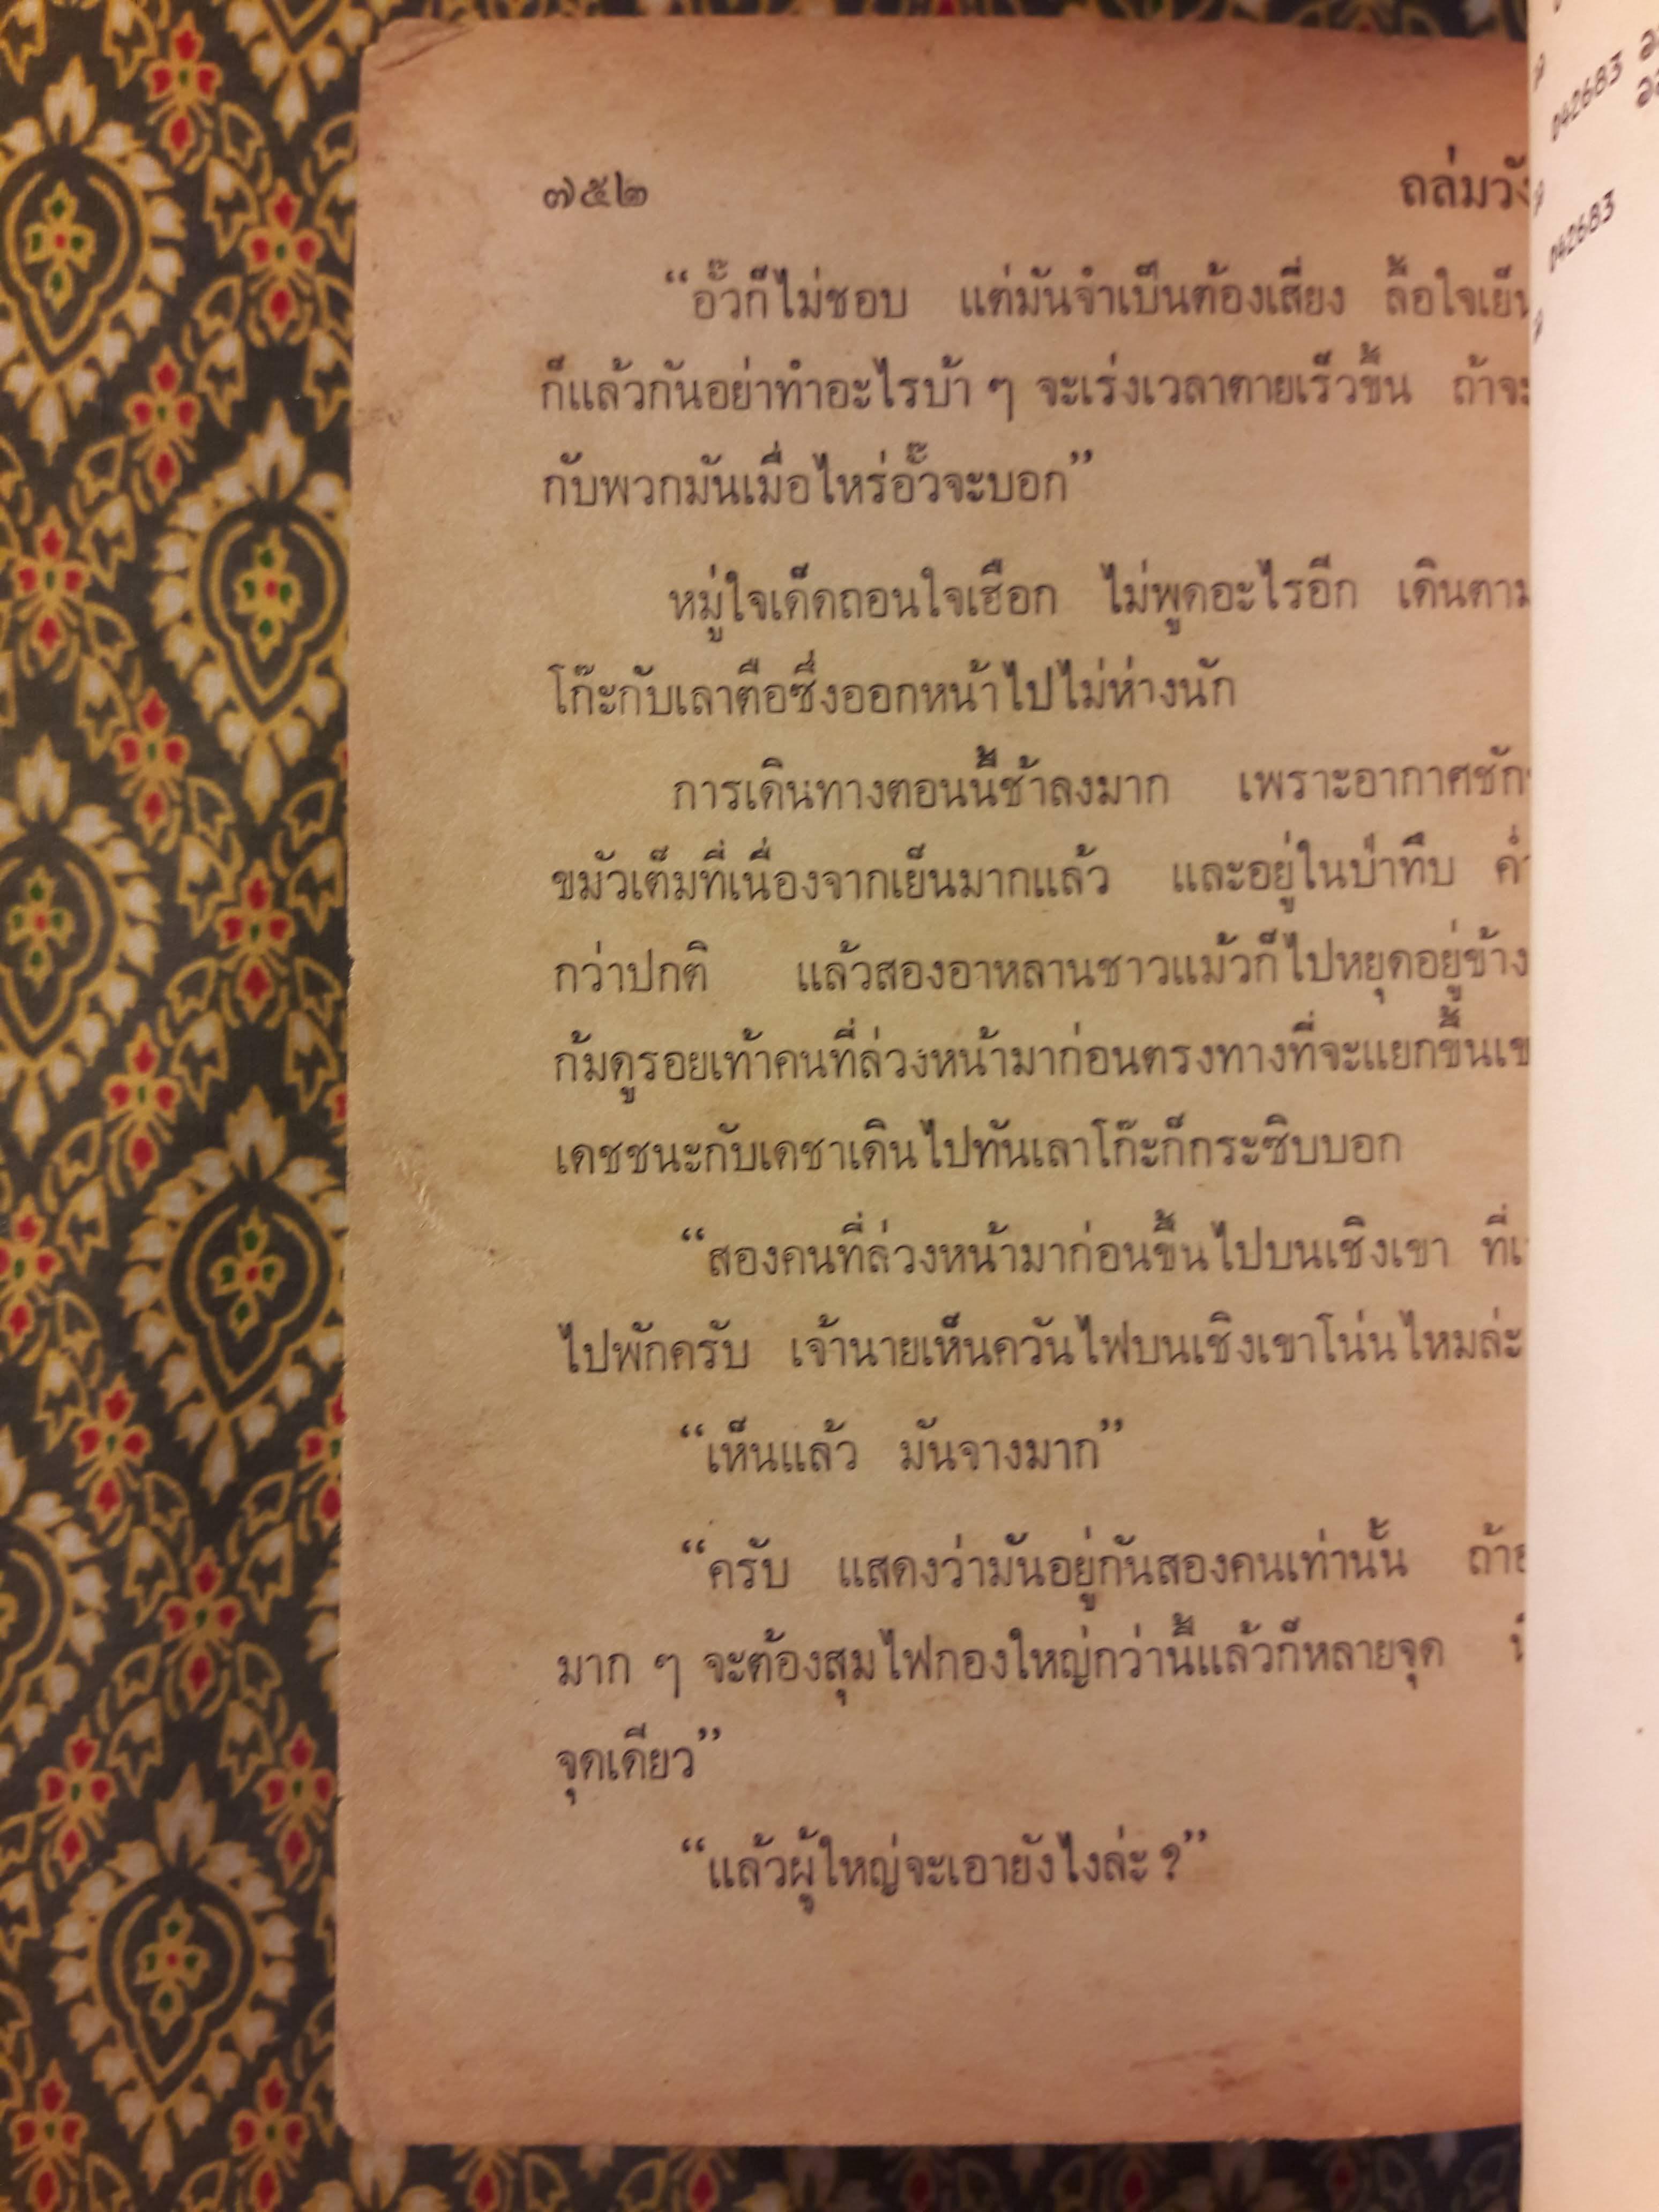 ๗๕๒ ถล่มวัง
“อั๊วก็ไม่ชอบ แต่มันจำเป็นต้องเสี่ยง ลื้อใจเย็น
ก็แล้วกันอย่าทำอะไรบ้า ๆ จะเร่งเวลาตายเร็วขึ้น ถ้าจะ
กับพวกมันเมื่อไหร่อั๊วจะบอก”
หมู่ใจเด็ดถอนใจเฮือก ไม่พูดอะไรอีก เดินตาม
โก๊ะกับเลาตือซึ่งออกหน้าไปไม่ห่างนัก
การเดินทางตอนนี้ช้าลงมาก เพราะอากาศชัก
ขมัวเต็มที่เนื่องจากเย็นมากแล้ว และอยู่ในป่าทึบ
กว่าปกติ แล้วสองอาหลานชาวแม้วก็ไปหยุดอยู่ข้าง
ก้มดูรอยเท้าคนที่ล่วงหน้ามาก่อนตรงทางที่จะแยกขึ้น
เดชชนะกับเดชาเดินไปทันเลาโก๊ะก็กระซิบบอก
“สองคนที่ล่วงหน้ามาก่อนขึ้นไปบนเชิงเขา
ไปพักครับ เจ้านายเห็นควันไฟบนเชิงเขาโน่นไหมล่ะ
“เห็นแล้ว มันจางมาก”
“ครับ แสดงว่ามันอยู่กันสองคนเท่านั้น
มาก ๆ จะต้องสุมไฟกองใหญ่กว่านี้แล้วก็หลายจุด
จุดเดียว”
“แล้วผู้ใหญ่จะเอายังไงล่ะ ?”
042683
042683